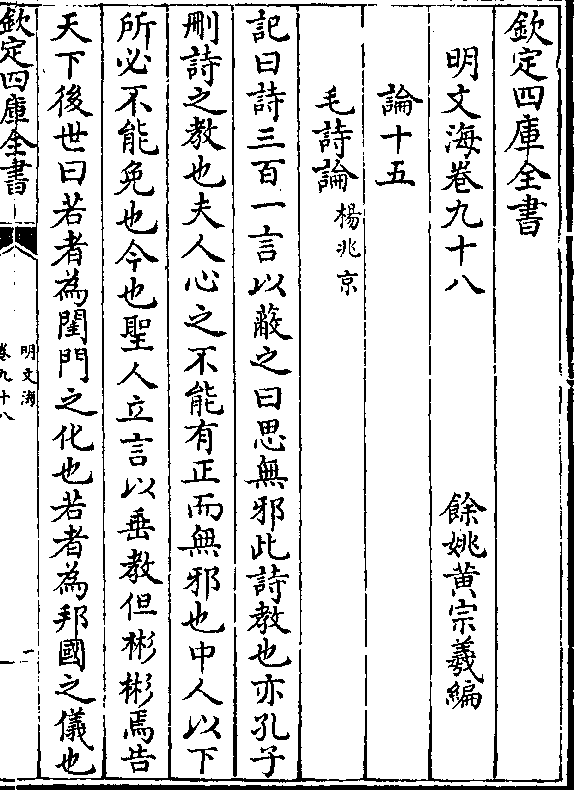 欽定四庫全書
明文海卷九十八
餘姚黄宗羲編
論十五
毛詩論 楊兆京
記曰詩三百一言以蔽之曰思無邪此詩教也亦孔子
刪詩之教也夫人心之不能有正而無邪也中人以下
所必不能免也今也聖人立言以垂教但彬彬焉告
天下後世曰若者為閨門之化也若者為邦國之儀也
欽定四庫全書
明文海
卷九十八
一